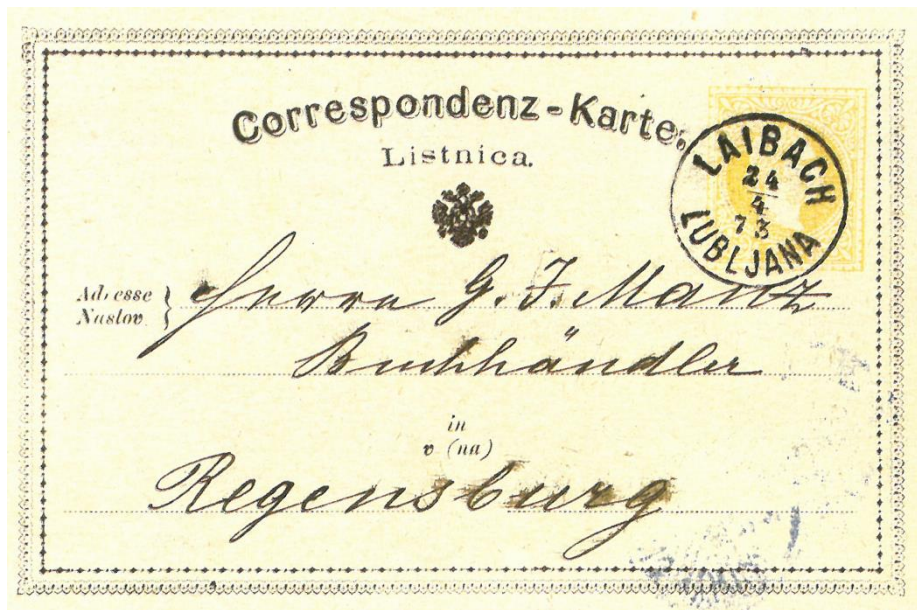 Correspondenz-Karte.
Listnica.
LAIBACH
24
4
73
LUBLJANA
Adresse
Naslov
Herrn G. J. Manz
Buchhändler
in
v (na)
Regensburg